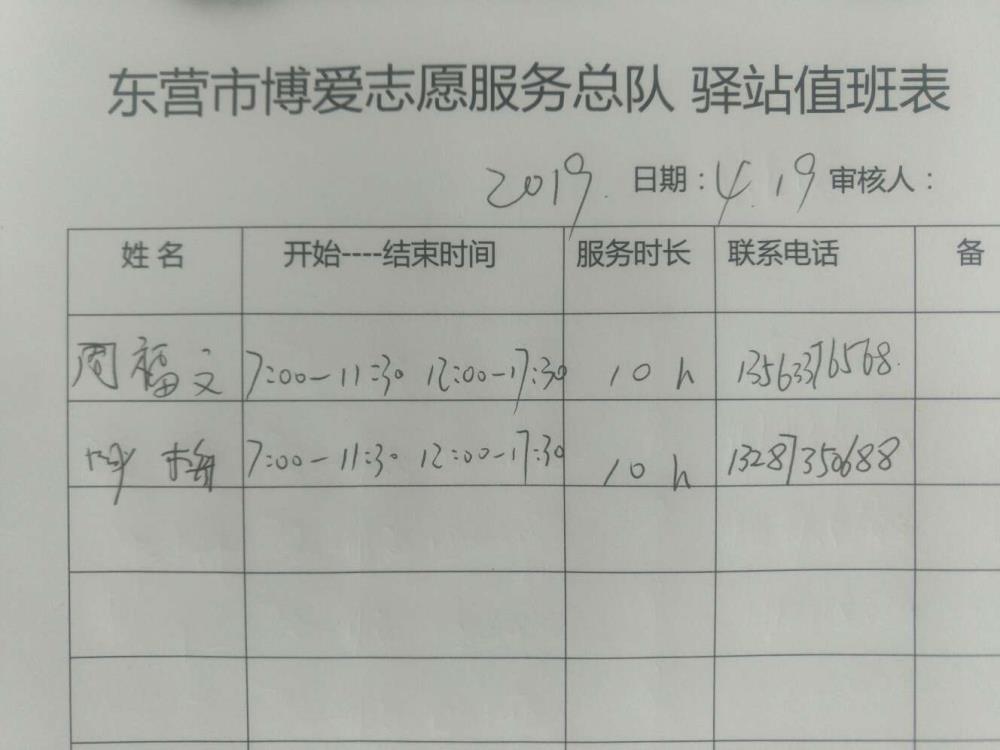 东营市博爱志愿服务总队 驿站值班表
2019. 日期：4.19 审核人：
姓名 开始----结束时间 服务时长 联系电话 备
周福文 7:00-11:30 12:00-17:30 10 h 13563376568
梅 7:00-11:30 12:00-17:30 10 h 13287350688